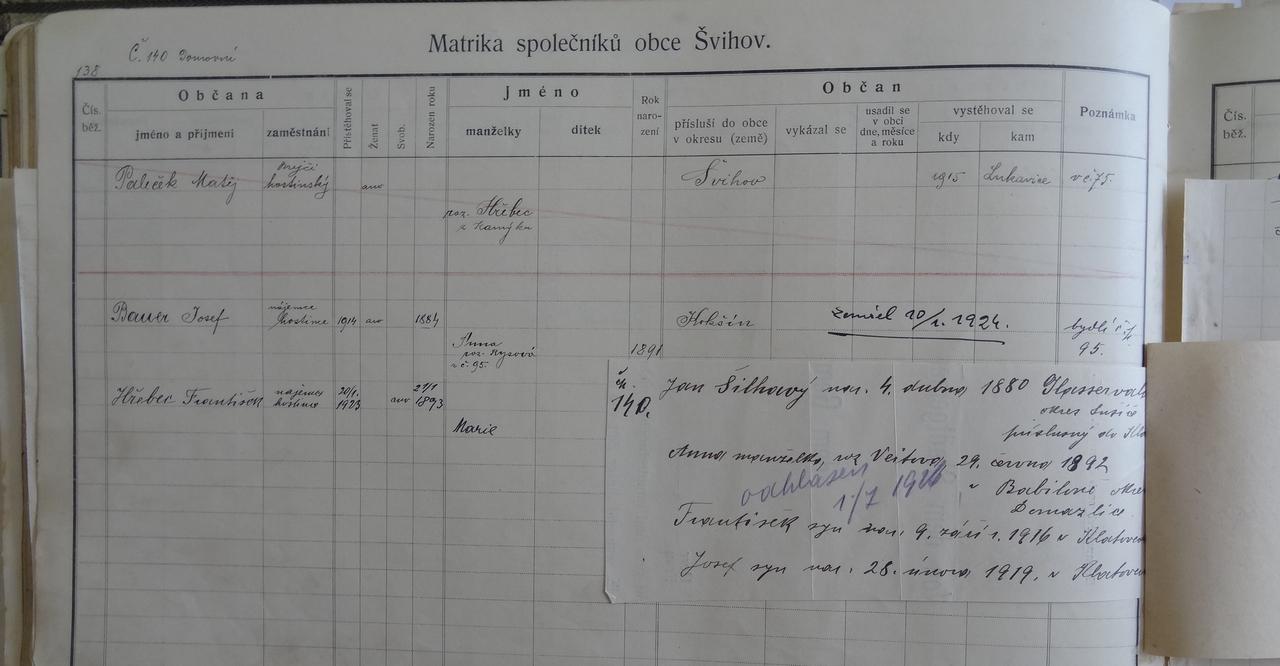 Č. 140 Domovní
Matrika společníků obce Švihov.
138
Čís. běž.
Občana
jméno a příjmení
zaměstnání
Přistěhoval se
Ženat
Svob.
Narozen roku
Jméno
manželky
dítek
Rok naro-zení
Občan
přísluší do obce v okresu (země)
vykázal se
usadil se v obci dne, měsíce a roku
vystěhoval se
kdy
kam
Poznámka
Čís. běž.
krejčí
Paliček Matěj hostinský ano Švihov 1915 Lukavice v č. 75.
roz. Hřebec
z Kamýka
nájemce
Bauer Josef hostince 1914 ano 1884 zemřel 20/1. 1924. bydlí č.
Anna 1891 95.
roz. Rysová
z č. 95.
Hřebec František nájemce hostince 1923 ano 1893
Marie
čp.
140.
Jan Šilhavý nar. 4. dubna 1880
okres Sušice
příslušný do
Anna manželka, roz. Veitova, 29. června 1892
v Babiloně
Domažlice
odhlášen
1/7 1926
František syn nar. 9. září r. 1916 v
Josef syn nar. 28. února 1919. v